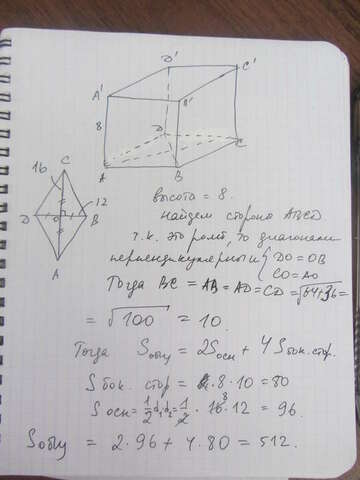 D' C'
A' B'
8
D C
A B
16 C
12
D O B
A
высота = 8.
найдем сторону ABCD
т.к. это ромб, то диагонали
перпендикулярны и { DO = OB
CO = AO
Тогда BC = AB = AD = CD = √64+36 =
= √100 = 10.
Тогда Sобщ = 2Sосн + 4Sбок. стор.
Sбок. стор = 8·10 = 80
Sосн = 1/2 d₁d₂ = 1/2 · 16 8 · 12 = 96.
Sобщ = 2·96 + 4·80 = 512.